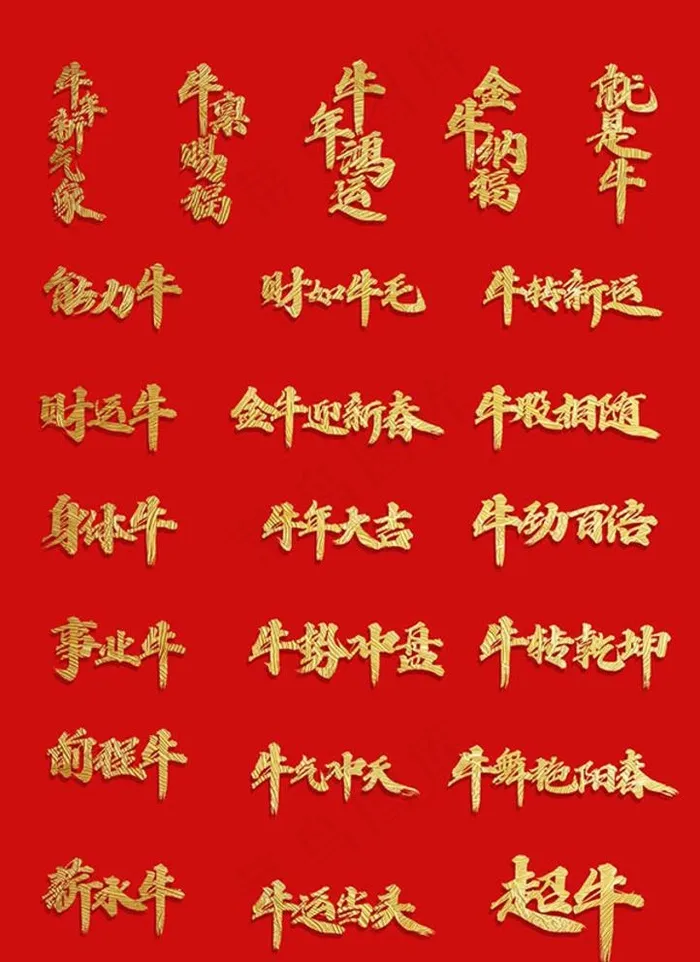 牛年新气象
牛气赐福
牛年鸿运
金牛纳福
就是牛
能力牛
财如牛毛
牛转新运
财运牛
金牛迎新春
牛股相随
身体牛
牛年大吉
牛劲百倍
事业牛
牛势冲盘
牛转乾坤
前程牛
牛气冲天
牛舞艳阳春
薪水牛
牛运当头
超牛